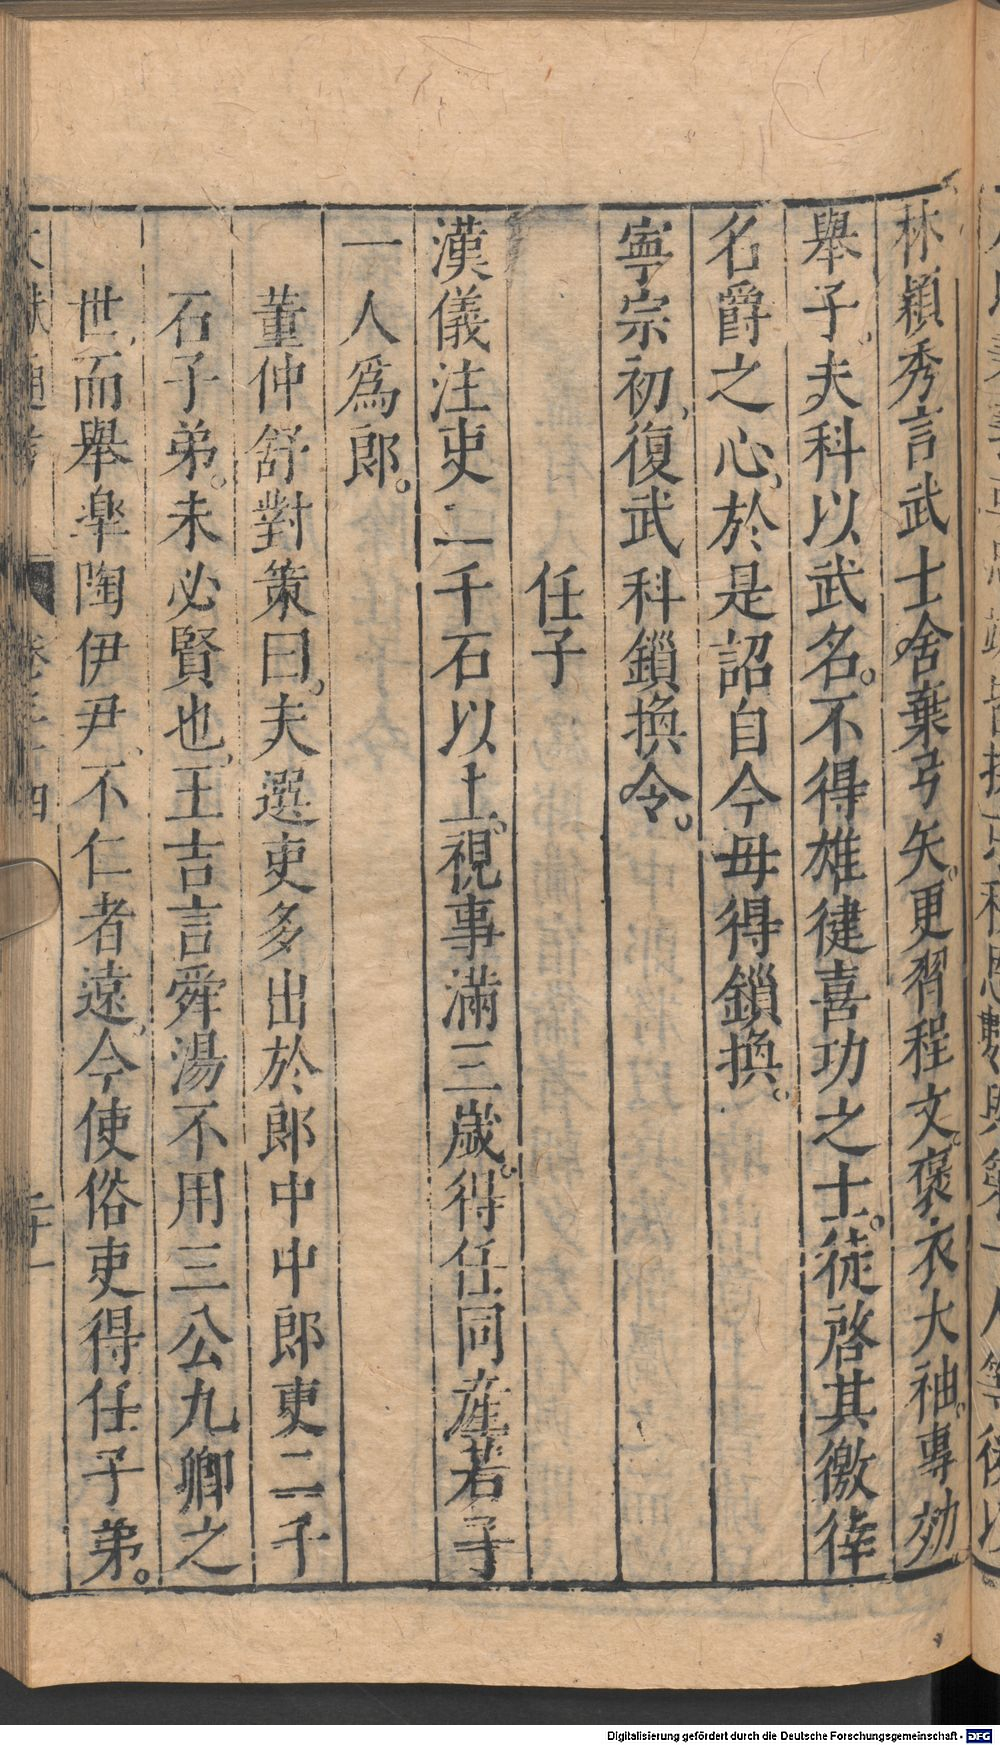 林穎秀言武士舍棄弓矢。更習程文。褒衣大袖。專効
舉子。夫科以武名。不得雄健喜功之士。徒啓其徼倖
名爵之心、於是詔自今毋得鎖換。
寧宗初、復武科鎖換令。
任子
漢儀注吏二千石以上。視事滿三歲。得任同產若子
一人爲郎。
董仲舒對策曰。夫選吏多出於郎中中郎吏二千
石子弟。未必賢也、王吉言舜湯不用三公九卿之
世、而舉臯陶伊尹、不仁者遠、今使俗吏得任子弟。
文獻通考 卷三十四 二十一
Digitalisierung gefördert durch die Deutsche Forschungsgemeinschaft - DFG